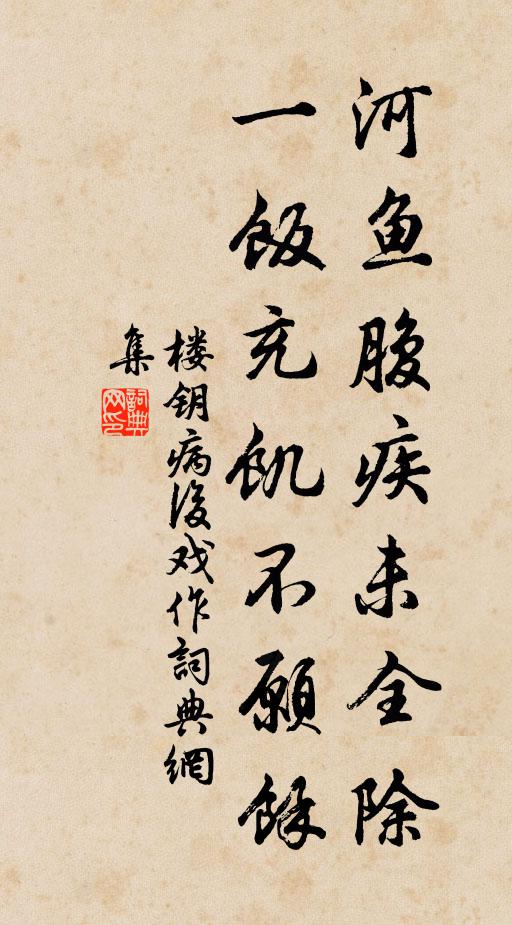 河鱼腹疾未全除
一饭充饥不愿馀
楼钥病后戏作词典網
集
詞典
网印